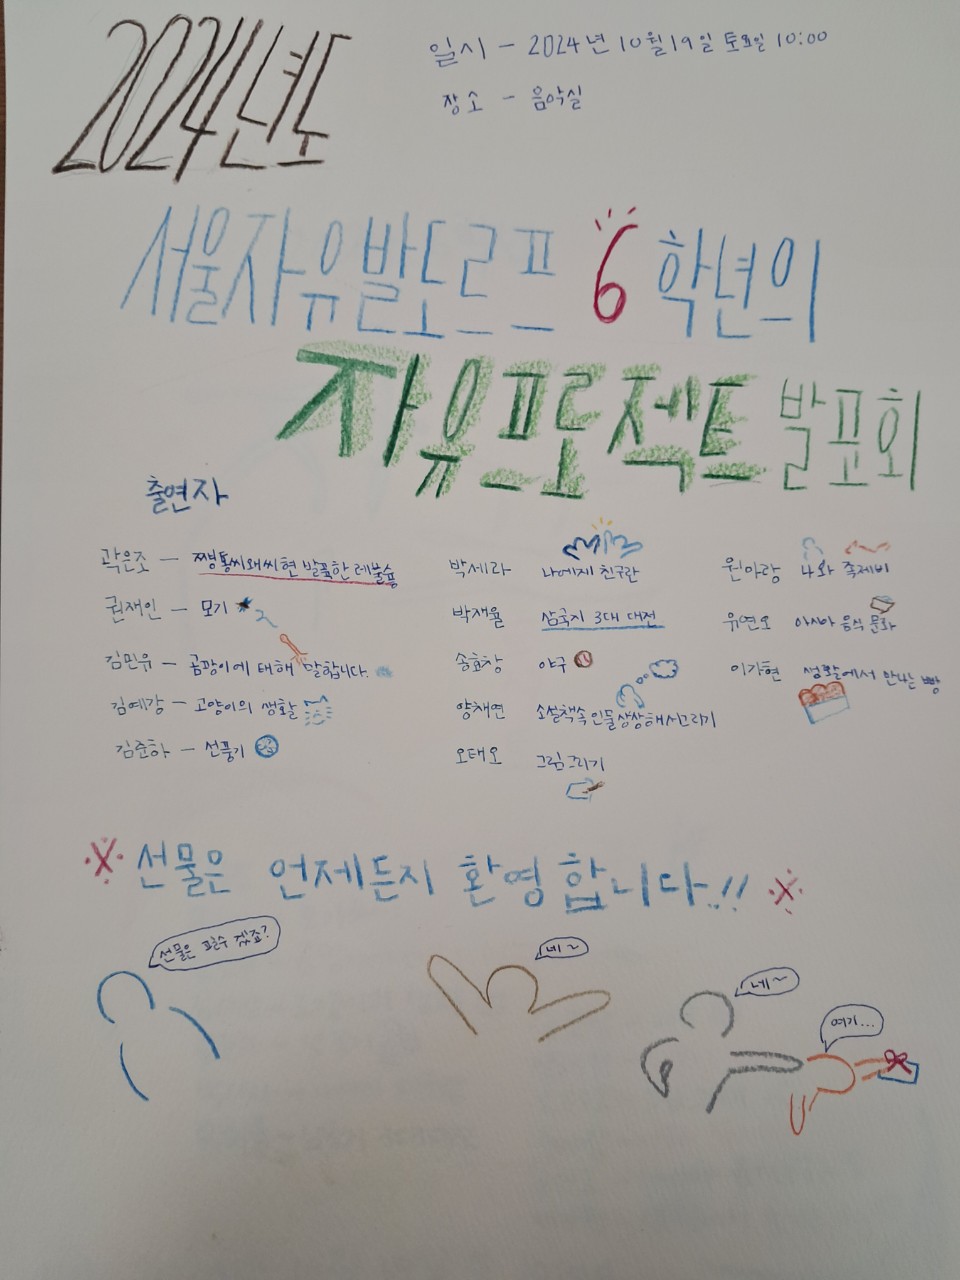 2024년도
일시 - 2024년 10월 19일 토요일 10:00
장소 - 음악실
서울자유발도르프 6학년의
자유프로젝트 발표회
출연자
곽은조 - 발꿈한 레불숲
권재인 - 모기
김민유 - 곰팡이에 대해 말합니다.
김예강 - 고양이의 생활
김준하 - 선풍기
박세라 나에게 친구란
박재율 삼국지 3대 대전
송효창 야구
양채연 소설책속 인물상상해서그리기
오태오 그림그리기
원아랑 나와 족제비
유연오 아시아 음식 문화
이가현 생활에서 만나는 빵
※ 선물은 언제든지 환영합니다..!! ※
선물은 필수 겠죠?
네~
네~
여기...